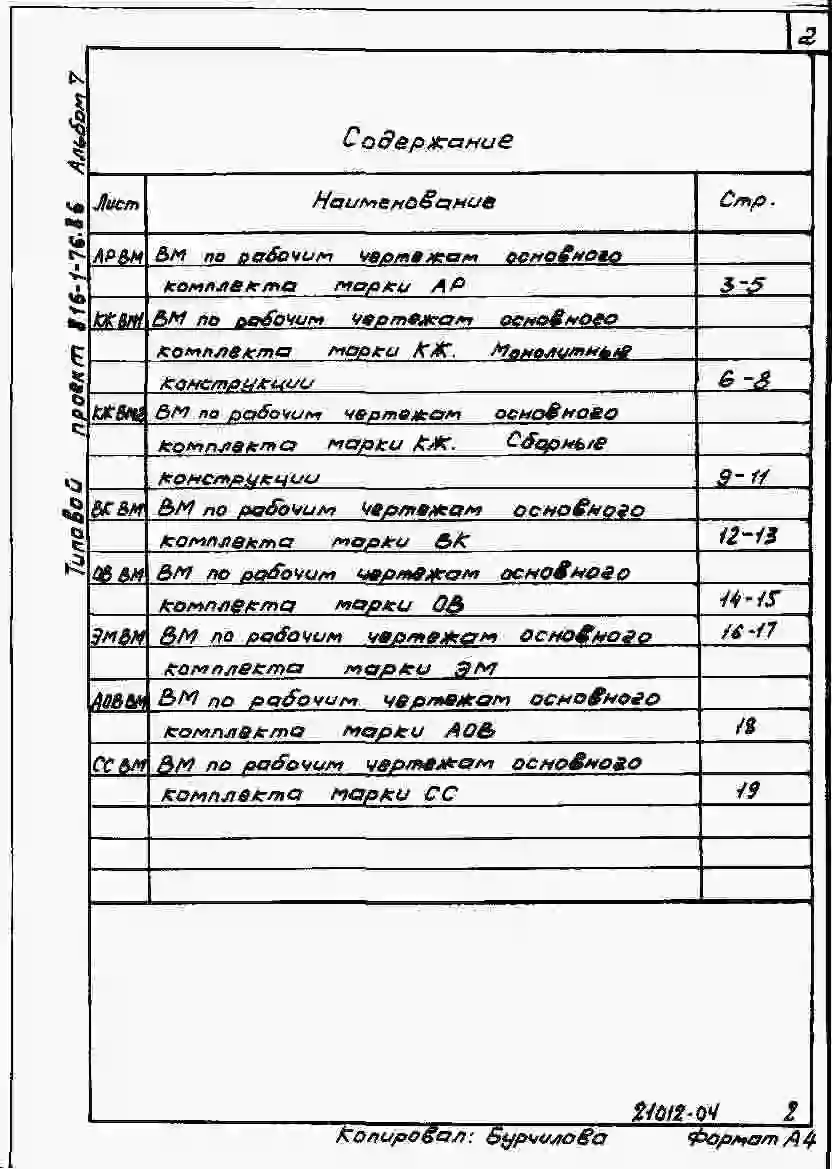 2
Типовой проект 816-1-76.86 Альбом 7
Содержание
Лист Наименование Стр.
АР ВМ ВМ по рабочим чертежам основного
комплекта марки АР 3-5
КЖ ВМ1 ВМ по рабочим чертежам основного
комплекта марки КЖ. Монолитные
конструкции 6-8
КЖ ВМ2 ВМ по рабочим чертежам основного
комплекта марки КЖ. Сборные
конструкции 9-11
ВК ВМ ВМ по рабочим чертежам основного
комплекта марки ВК 12-13
ОВ ВМ ВМ по рабочим чертежам основного
комплекта марки ОВ 14-15
ЭМ ВМ ВМ по рабочим чертежам основного 16-17
комплекта марки ЭМ
АОВ ВМ ВМ по рабочим чертежам основного
комплекта марки АОВ 18
СС ВМ ВМ по рабочим чертежам основного
комплекта марки СС 19
21012-04 2
Копировал: Бурчилова Формат А4